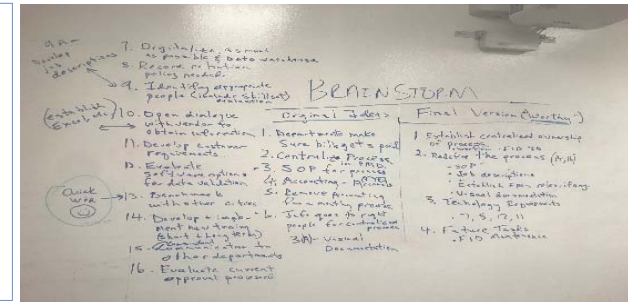 7. Digitalize as much
as possible & Data warehouse
8. Record retention
policy needed
9. Identifying appropriate
people (include skillset)
evaluation
develop
job
descriptions
BRAINSTORM
10. Open dialogue
with vendor to
obtain information
(establish
11. Develop customer
requirements
12. Evaluate
software options
for data validation
Quick
Win
13. Benchmark
with other cities
14. Develop & imple-
ment new training
(short & long term)
15. Communication to
other departments
16. Evaluate current
approval process
Original Ideas
1. Departments make
sure bills get paid
2. Centralize Process
3. SOP for process
4. Accounting -
5. Remove
from
6. Info goes to right
people for centralized
process
3(A) - Visual
Documentation
Final Version (Worthy)
1. Establish centralized ownership
of process
2. Redefine the process
- SOP
- Job descriptions
- Establish
- Visual documentation
3. Technology Requirements
- 7, 8, 12, 11
4. Future Tasks